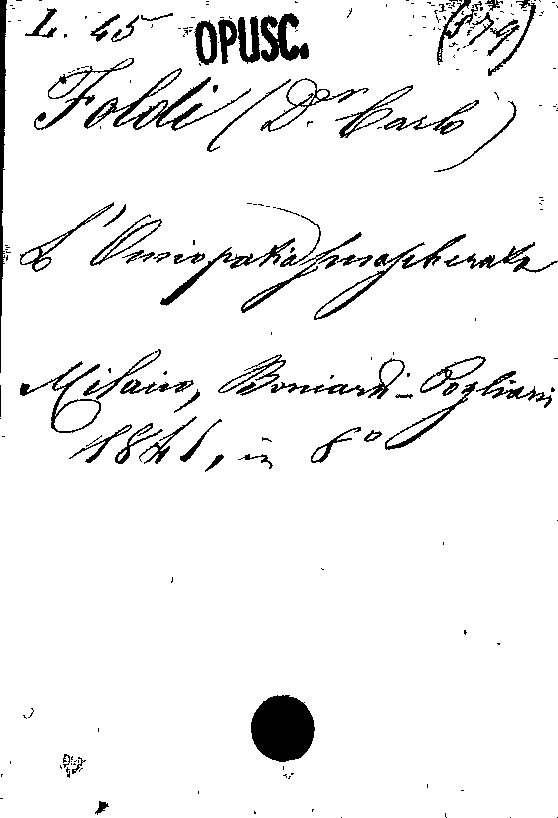 L. 45 OPUSC. (579)
Foldi (D.r Carlo)
L'Omiopatia smascherata
Milano, Boniardi-Pogliani
1841, in 8°